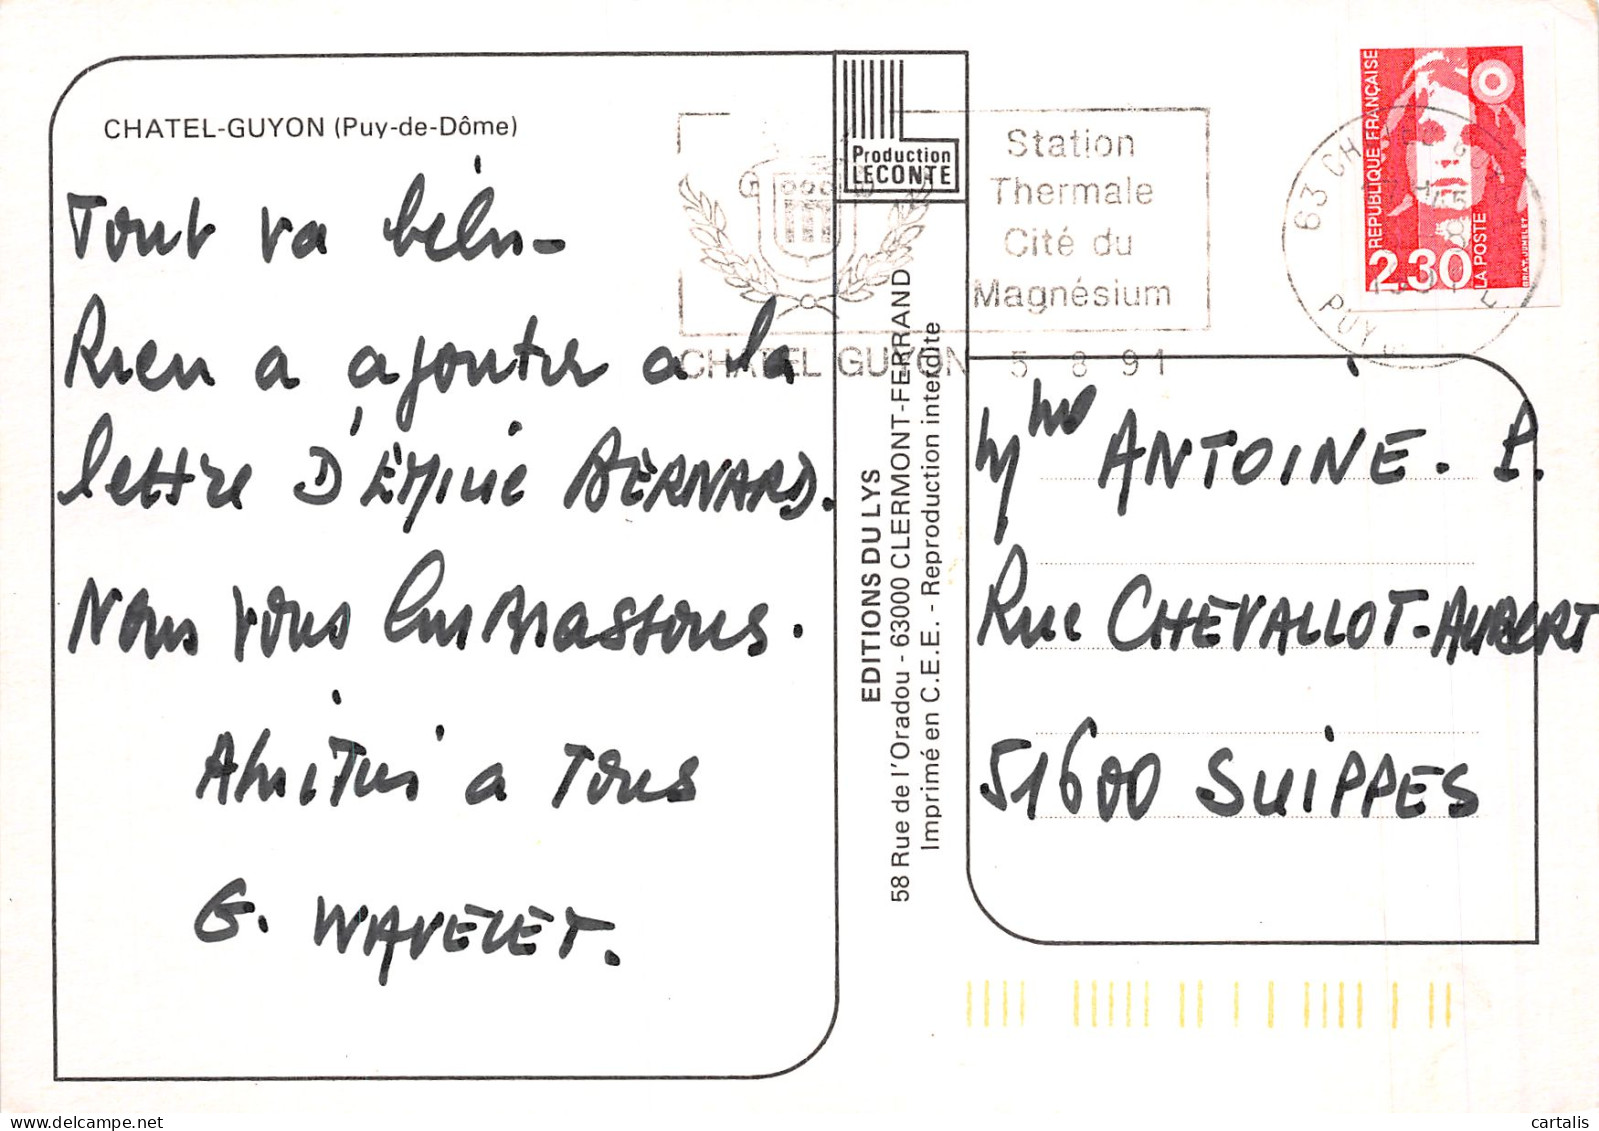 CHATEL-GUYON (Puy-de-Dôme)
Tout va bién-
Rien a ajouter a la
lettre D'ÉMILIE BERNARD.
Nous vous Embrassons.
Amitiés a Tous
G. WAVELET.
Production
LECONTE
EDITIONS DU LYS
58 Rue de l'Oradou - 63000 CLERMONT-FERRAND
Imprimé en C.E.E. - Reproduction interdite
Station
Thermale
Cité du
Magnésium
CHATEL GUYON 5 8 91
REPUBLIQUE FRANÇAISE
2,30
LA POSTE
BRIAT-JUMELET
63 CH
PUY
Mme ANTOINE. P.
Rue CHEVALLOT-AUBERT
51600 SUIPPES
cartalis